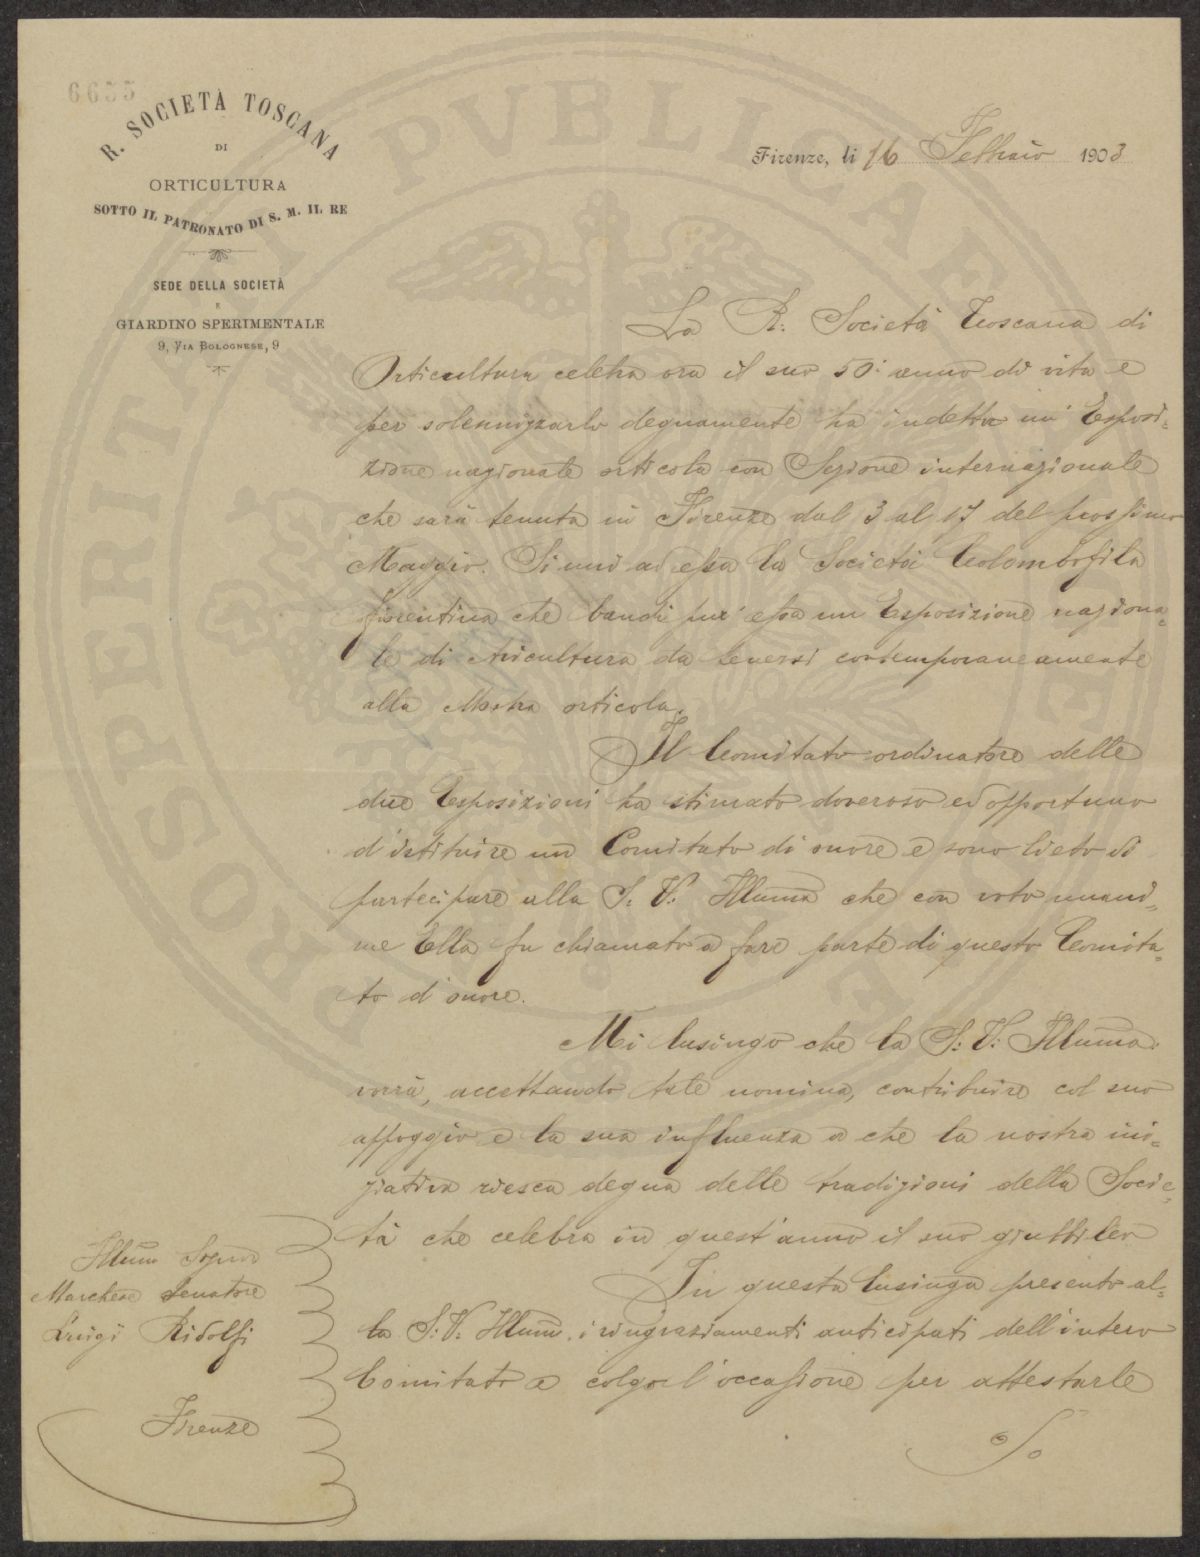 6655
R. SOCIETÀ TOSCANA
DI
ORTICULTURA
SOTTO IL PATRONATO DI S. M. IL RE
SEDE DELLA SOCIETÀ
E
GIARDINO SPERIMENTALE
9, VIA BOLOGNESE, 9
Firenze, li 16 Febbraio 1903
PROSPERITATI PVBLICAE
La R. Società Toscana di
Orticultura celebra ora il suo 50° anno di vita e
per solennizzarlo degnamente ha indetta un' Esposi=
zione nazionale orticola con Sezione internazionale
che sarà tenuta in Firenze dal 3 al 17 del prossimo
Maggio. Si unì ad essa la Società Colombofila
fiorentina che bandì pur' essa un Esposizione naziona=
le di Avicultura da tenersi contemporaneamente
alla Mostra orticola.
Il Comitato ordinatore delle
due Esposizioni ha stimato doveroso ed opportuno
d'istituire un Comitato di onore e sono lieto di
partecipare alla S. V. Illuma che con voto unani=
me Ella fu chiamato a fare parte di questo Comita=
to d'onore.
Mi lusingo che la S. V. Illuma
vorrà, accettando tale nomina, contribuire col suo
appoggio e la sua influenza a che la nostra ini=
ziativa riesca degna delle tradizioni della Socie=
tà che celebra in quest'anno il suo giubbileo
In questa lusinga presento al=
la S. V. Illum. i ringraziamenti anticipati dell'intero
Comitato e colgo l'occasione per attestarle
Illum Signor
Marchese Senatore
Luigi Ridolfi
Firenze